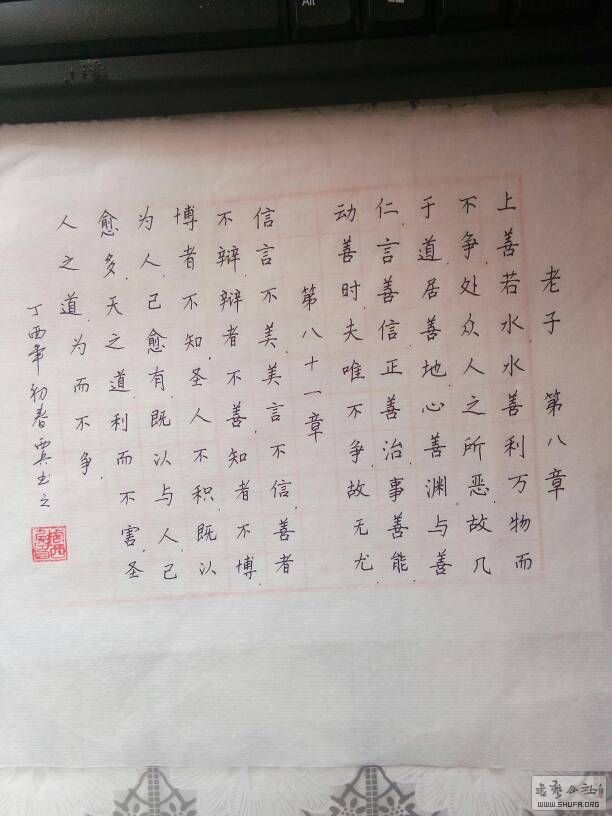 Alt
老子 第八章
上善若水水善利万物而
不争处众人之所恶故几
于道居善地心善渊与善
仁言善信正善治事善能
动善时夫唯不争故无尤
第八十一章
信言不美美言不信善者
不辩辩者不善知者不博
博者不知圣人不积既以
为人己愈有既以与人己
愈多天之道利而不害圣
人之道为而不争
丁酉年初春书之
书艺公社
WWW.SHUFA.ORG